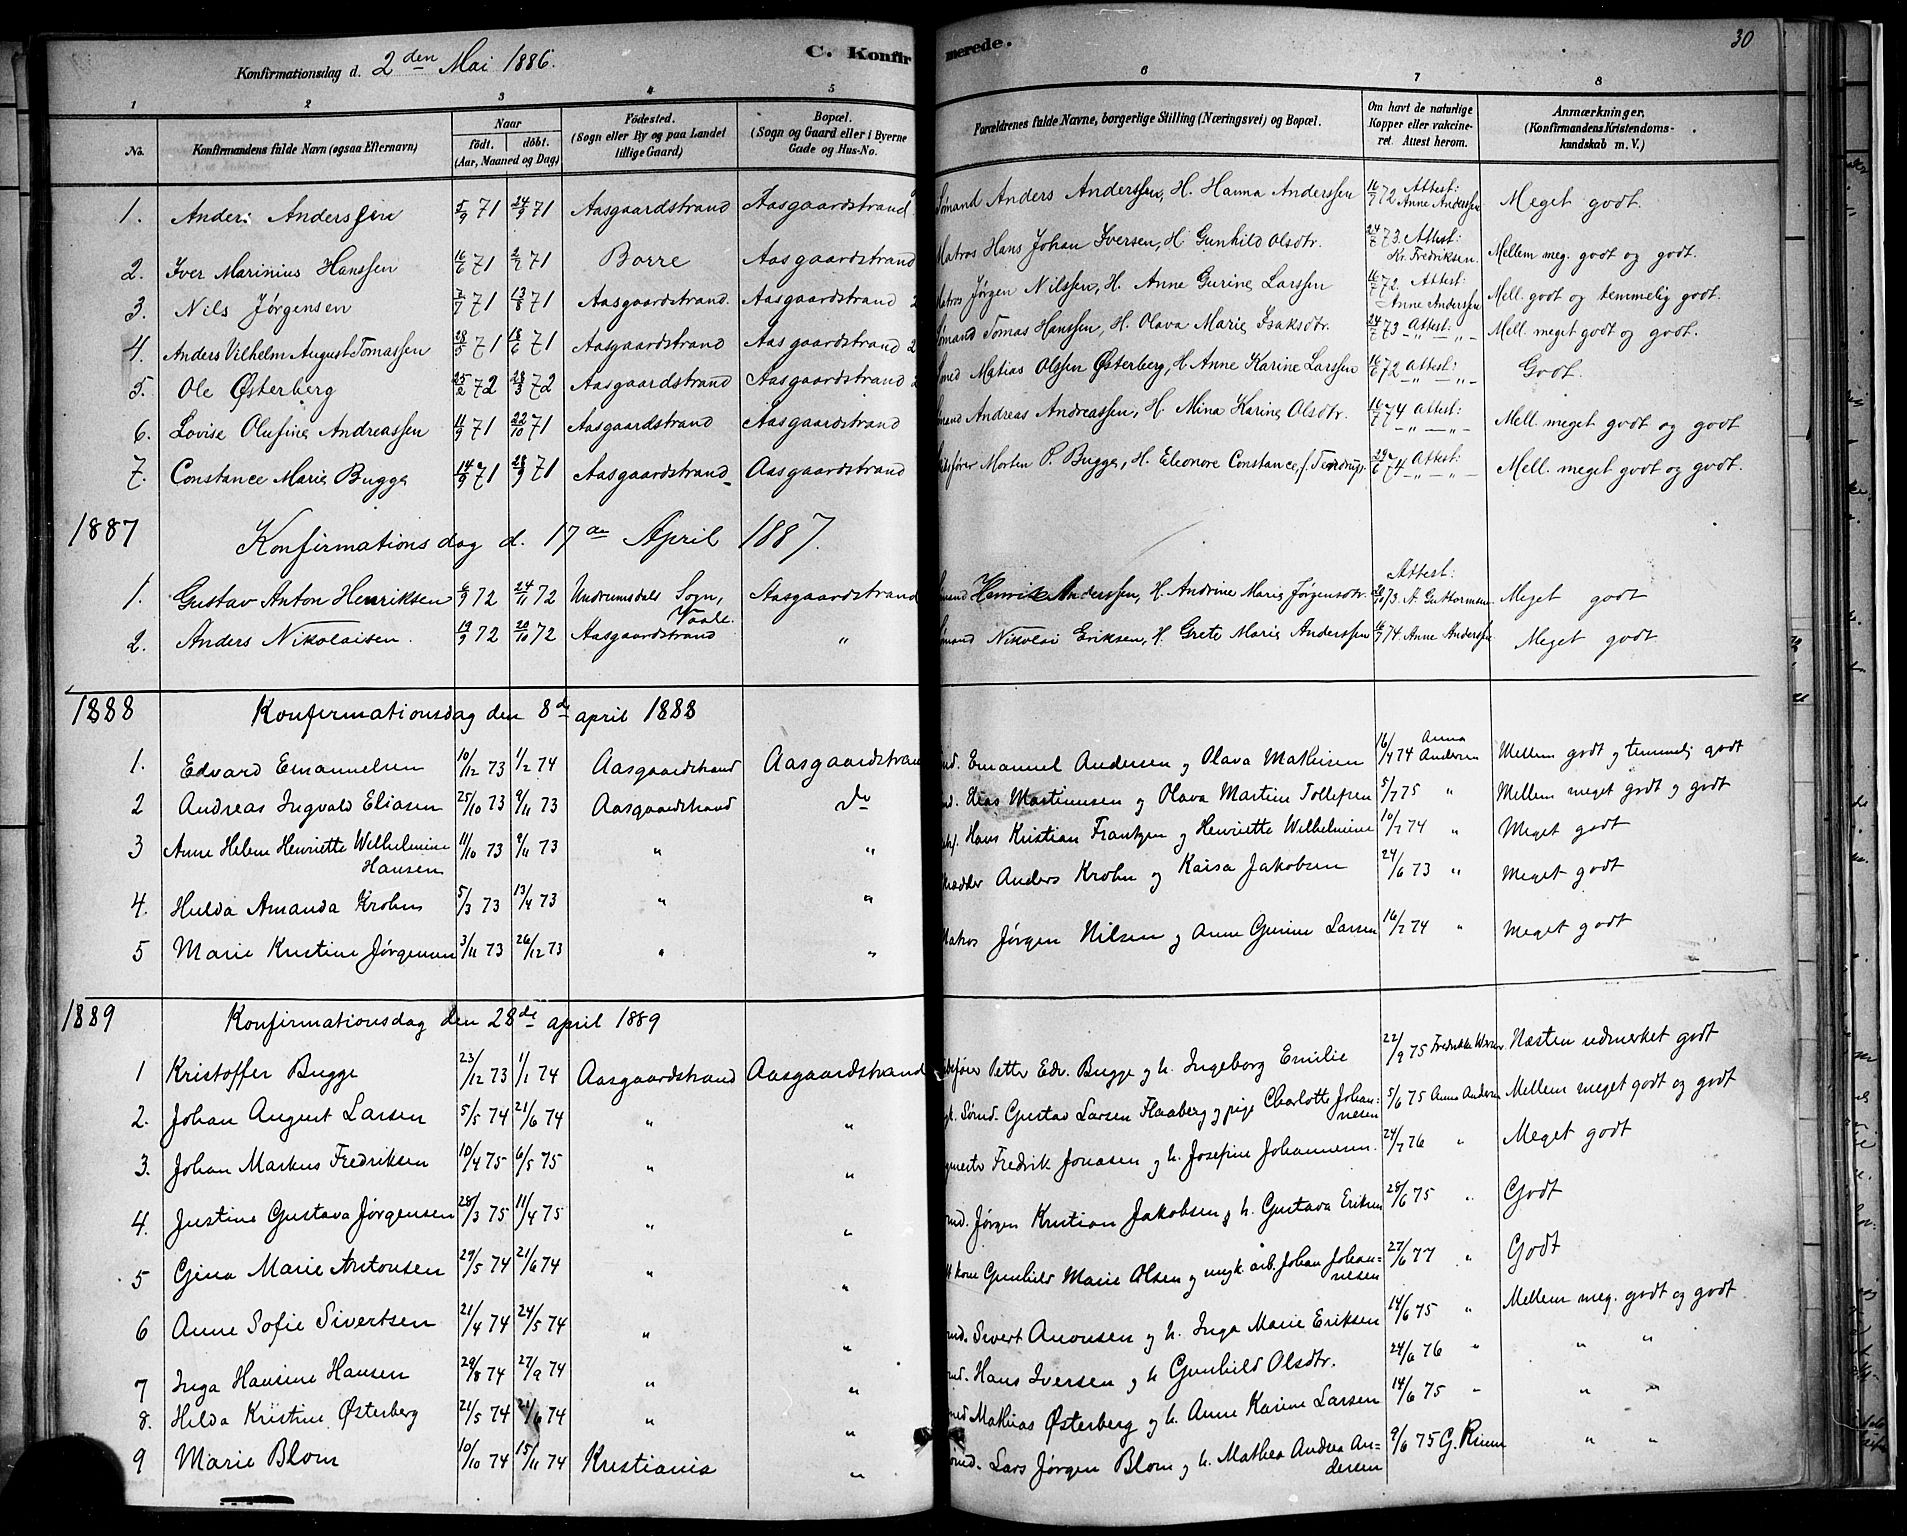 30
Konfirmationsdag d. 2den Mai 1886.
C. Konfirmerede.
1 2 3 4 5 6 7 8
No. Konfirmandens fulde Navn (ogsaa Efternavn) Naar født. døbt. (Aar, Maaned og Dag) Fødested. (Sogn eller By og paa Landet tillige Gaard) Bopæl. (Sogn og Gaard eller i Byerne Gade og Hus-No. Forældrenes fulde Navne, borgerlige Stilling (Næringsvei) og Bopæl. Om havt de naturlige Kopper eller vakcineret. Attest herom. Anmærkninger. (Konfirmandens Kristendomskundskab m. V.)
1. Anders Anderssen 5/9 71 24/9 71 Aasgaardstrand Aasgaardstrand Sømand Anders Anderssen, H. Hanna Anderssen 16/7 72 Attest: Anne Anderssen Meget godt.
2. Iver Marinius Hanssen 16/6 71 2/7 71 Borre Aasgaardstrand Matros Hans Johan Iversen, H. Gunhild Olsdtr. 24/7 73. Attest: Kr. Fredriksen. Mellem meg. godt og godt.
3. Nils Jørgensen 7/7 71 13/8 71 Aasgaardstrand. Aasgaardstrand Matros Jørgen Nilssen, H. Anne Gurine Larssen 16/7 72 Attest: Anne Anderssen Mell. godt og temmelig godt.
4. Anders Vilhelm August Tomassen 28/5 71 18/6 71 Aasgaardstrand Aasgaardstrand Sømand Tomas Hanssen, H. Olava Marie Isaksdtr. 24/7 73 Attest: -"- -"- Mell. meget godt og godt.
5. Ole Østerberg 25/2 72 28/3 72 Aasgaardstrand Aasgaardstrand Smed Matias Olssen Østerberg, H. Anne Karine Larssen 16/6 72 Attest: -"- -"- Godt.
6. Lovise Olufine Andreassen 11/9 71 22/10 71 Aasgaardstrand Aasgaardstrand Andreas Andreassen, H. Mina Karine Olsdtr. 16/7 74 Attest: -"- -"- Mell. meget godt og godt
7. Constance Marie Bugge 14/9 71 28/9 71 Aasgaardstrand Aasgaardstrand Morten P. Bugge, H. Eleonore Constance, f. 29/6 74 Attest: -"- -"- Mell. meget godt og godt.
1887 Konfirmationsdag d. 17de April 1887.
1. Gustav Anton Henriksen 6/9 72 24/11 72 Undrumsdals Sogn, Vaale. Aasgaardstrand Henrik Anderssen, H. Andrine Marie Jørgensdtr. 73. Attest: A. Guttormsen Meget godt
2. Anders Nikolaisen. 19/9 72 20/10 72 Aasgaardstrand " Sømand Nikolai Eriksen, H. Grete Marie Anderssen 16/7 74 Anne Anderssen Meget godt.
1888 Konfirmationsdag den 8de april 1888
1. Edvard Emanuelsen 10/12 73 1/2 74 Aasgaardstrand Aasgaardstrand Emanuel Andersen og Olava Mathisen 16/4 74 Anna Andersen Mellem godt og temmelig godt
2 Andreas Ingvald Eliasen 25/10 73 9/11 73 Aasgaardstrand do Elias Martinusen og Olava Martine Tollefsen 5/7 75 " Mellem meget godt og godt
3 Anne Helene Henriette Wilhelmine Hansen 11/10 73 9/11 73 " " Hans Kristian Frantzen og Henriette Wilhelmine 10/7 74 " Meget godt
4. Hulda Amanda Krohn 5/3 73 13/4 73 " " Anders Krohn og Kaisa Jakobsen 24/6 73 " Meget godt
5 Marie Kristine Jørgensen 3/11 73 26/12 73 " " Matros Jørgen Nilsen og Anne Gurine Larsen 16/7 74 " Meget godt
1889 Konfirmationsdag den 28de april 1889
1 Kristoffer Bugge 23/12 73 1/1 74 Aasgaardstrand Aasgaardstrand Petter Edv. Bugge og h. Ingeborg Emilie 22/9 75 Fredrikke Næsten udmerket godt
2. Johan August Larsen 5/5 74 21/6 74 " " Sømd. Gustav Larsen Flaaberg og pige Charlotte Johannesen 5/6 75 Anna Andersen Mellem meget godt og godt
3. Johan Markus Fredriksen 10/4 75 6/5 75 " " Fredrik Jonasen og h. Josefine Johannesen. 24/7 76 " Meget godt
4. Justine Gustava Jørgensen 28/3 75 11/4 75 " " Jørgen Kristian Jakobsen og h. Gustava Eriksen 28/6 75 " Godt
5 Gina Marie Antonsen 29/5 74 21/6 74 " " kone Gunhild Marie Olsen og ungk. arb. Johan Johannesen 27/6 77 " Godt
6 Anne Sofie Sivertsen 21/4 74 24/5 74 " " Sivert Aronsen og h. Inga Marie Eriksen 14/6 75 " Mellem meg. godt og godt
7 Inga Hansine Hansen 29/8 74 27/9 74 " " Hans Iversen og h Gunhild Olsdtr. 24/6 76 " " "
8. Hilda Kristine Østerberg 21/5 74 21/6 74 " " Mathias Østerberg og h. Anne Karine Larsen 14/6 75 " " "
9 Marie Blom 10/10 74 15/11 74 Kristiania " Lars Jørgen Blom og h. Mathea Andrea Andersen 9/6 75 G. " "